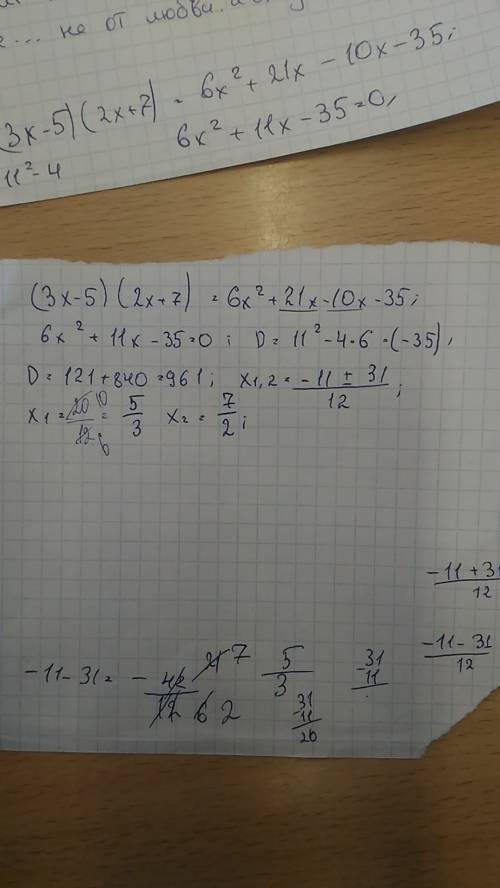 не от любви.
(3x-5)(2x+7) = 6x² + 21x - 10x - 35;
6x² + 11x - 35 = 0,
11² - 4
(3x-5)(2x+7) = 6x² + 21x - 10x - 35;
6x² + 11x - 35 = 0; D = 11² - 4·6·(-35),
D = 121 + 840 = 961; x₁,₂ = (-11 ± 31)/12;
x₁ = 20/12 10/6 = 5/3 x₂ = 7/2;
(-11 + 31)/12
(-11 - 31)/12
-11 - 31 = - 42/12 21/6 7/2
5/3
31
-11
20
31
-11